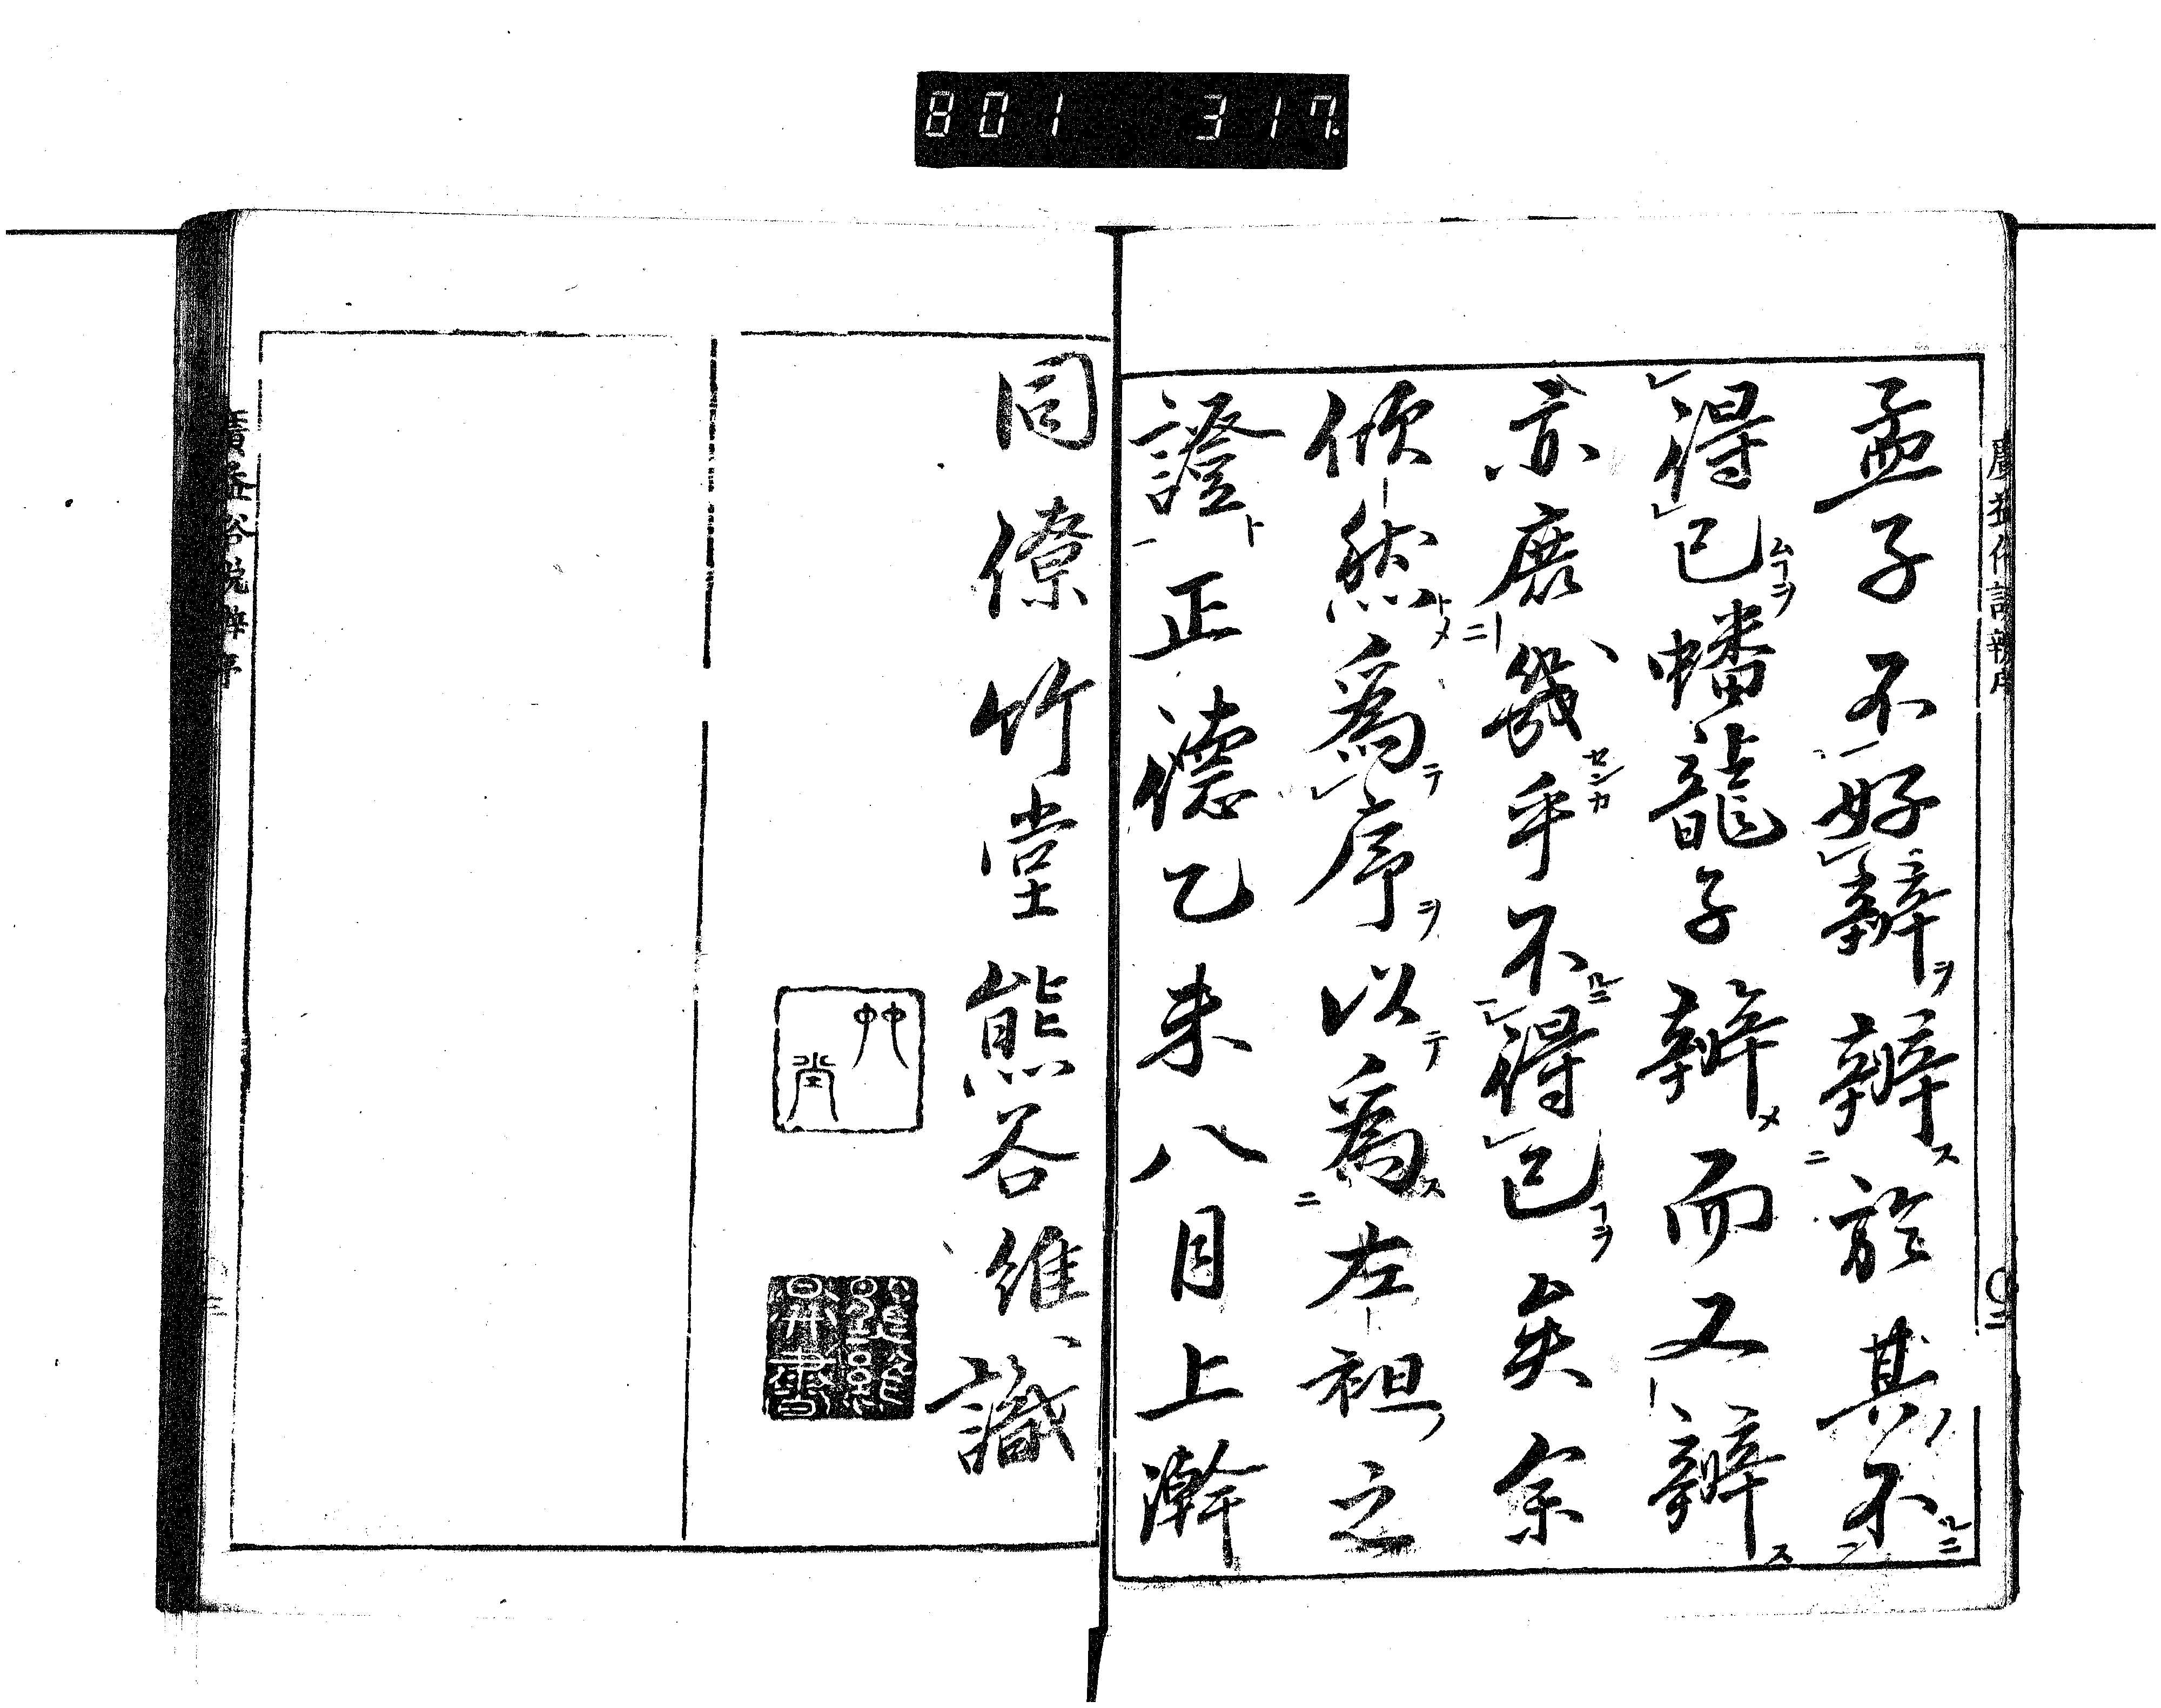 801 317
廣益俗說辨序 二
孟子不好辯辨於其不
得已蟠龍子辨而又辨
亦庶幾乎不得已矣余
然爲序以爲左袒之
證正德乙未八月上澣
同僚竹堂熊谷維識
竹堂
廣益俗說辨序 三